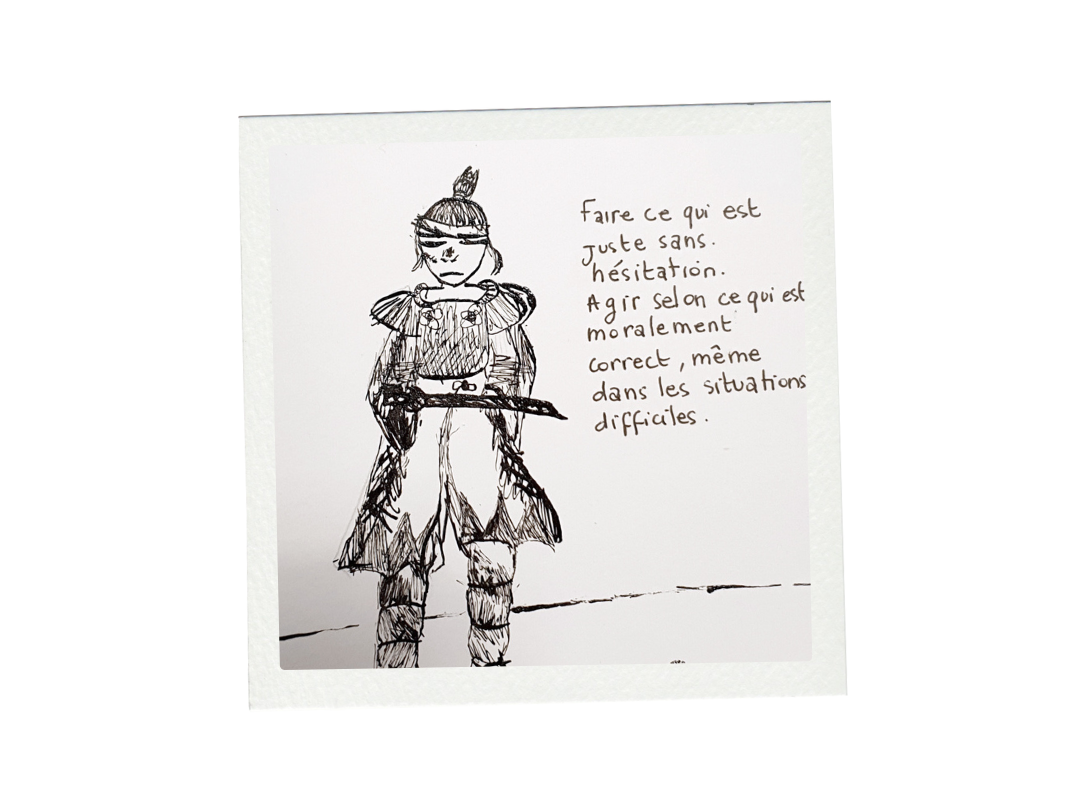 Faire ce qui est
juste sans.
hésitation.
Agir selon ce qui est
moralement
correct, même
dans les situations
difficiles.